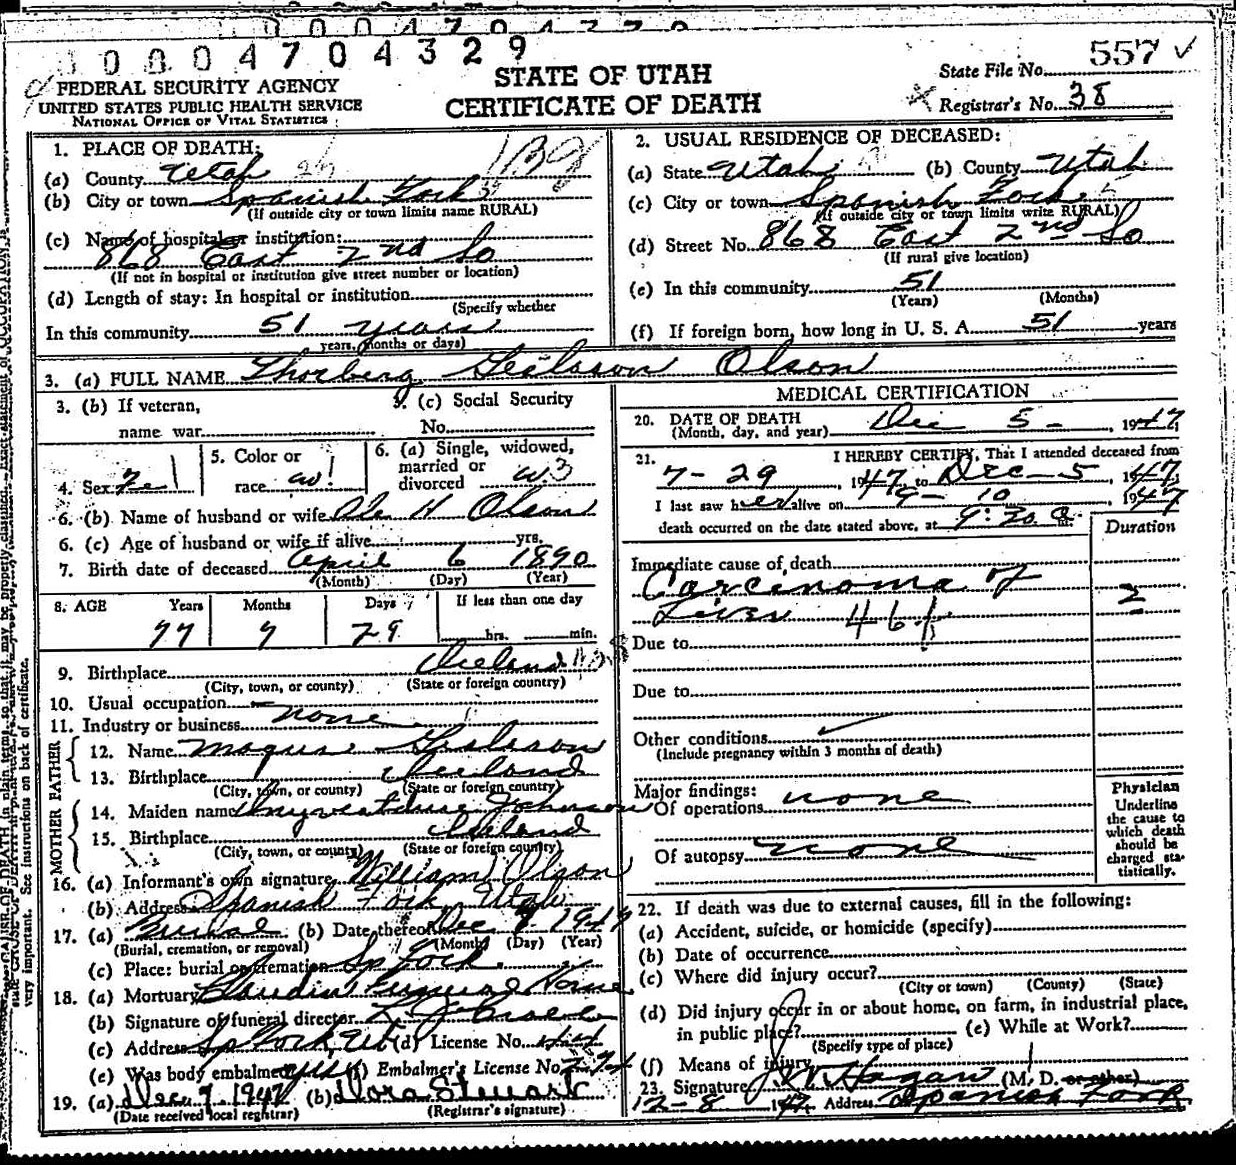 0004704329
FEDERAL SECURITY AGENCY
UNITED STATES PUBLIC HEALTH SERVICE
NATIONAL OFFICE OF VITAL STATISTICS
STATE OF UTAH
CERTIFICATE OF DEATH
State File No. 557 ✓
Registrar's No. 38
1. PLACE OF DEATH:
(a) County Utah
(b) City or town Spanish Fork
(If outside city or town limits name RURAL)
(c) Name of hospital or institution:
868 East 2nd So
(If not in hospital or institution give street number or location)
(d) Length of stay: In hospital or institution
(Specify whether
In this community 51 years
years, months or days)
2. USUAL RESIDENCE OF DECEASED:
(a) State Utah (b) County Utah
(c) City or town Spanish Fork
(If outside city or town limits write RURAL)
(d) Street No. 868 East 2nd So
(If rural give location)
(e) In this community 51
(Years) (Months)
(f) If foreign born, how long in U. S. A. 51 years
3. (a) FULL NAME Thorberg Olson
3. (b) If veteran,
name war
3. (c) Social Security
No.
4. Sex Fe
5. Color or
race w
6. (a) Single, widowed,
married or
divorced w
6. (b) Name of husband or wife Ole H Olson
6. (c) Age of husband or wife if alive yrs.
7. Birth date of deceased April 6 1890
(Month) (Day) (Year)
8. AGE Years Months Days If less than one day
77 7 29 hrs. min.
9. Birthplace Iceland
(City, town, or county) (State or foreign country)
10. Usual occupation
11. Industry or business none
FATHER
12. Name
13. Birthplace Iceland
(City, town, or county) (State or foreign country)
MOTHER
14. Maiden name Johnson
15. Birthplace Iceland
(City, town, or county) (State or foreign country)
16. (a) Informant's own signature William Olson
(b) Address Spanish Fork, Utah
17. (a) Burial (b) Date thereof Dec 1947
(Burial, cremation, or removal) (Month) (Day) (Year)
(c) Place: burial or cremation Sp Fork
18. (a) Mortuary Claudin Funeral Home
(b) Signature of funeral director
(c) Address Sp Fork Ut (d) License No. 44
(e) Was body embalmed yes (f) Embalmer's License No.
19. (a) Dec 9 1947 (b) Dora Stewart
(Date received local registrar) (Registrar's signature)
MEDICAL CERTIFICATION
20. DATE OF DEATH
(Month, day, and year) Dec 5 - , 1947
21. I HEREBY CERTIFY, That I attended deceased from
7-29, 1947, to Dec-5, 1947
I last saw her alive on 9-10 1947
death occurred on the date stated above, at 9:30 a m.
Duration
Immediate cause of death
Carcinoma of
Liver 461 2
Due to
Due to
Other conditions
(Include pregnancy within 3 months of death)
Major findings:
Of operations none
Of autopsy none
Physician
Underline
the cause to
which death
should be
charged sta-
tistically.
22. If death was due to external causes, fill in the following:
(a) Accident, suicide, or homicide (specify)
(b) Date of occurrence
(c) Where did injury occur?
(City or town) (County) (State)
(d) Did injury occur in or about home, on farm, in industrial place,
in public place? (e) While at Work?
(Specify type of place)
(f) Means of injury
23. Signature Hagan (M. D. or other)
12-8 1947 Address Spanish Fork